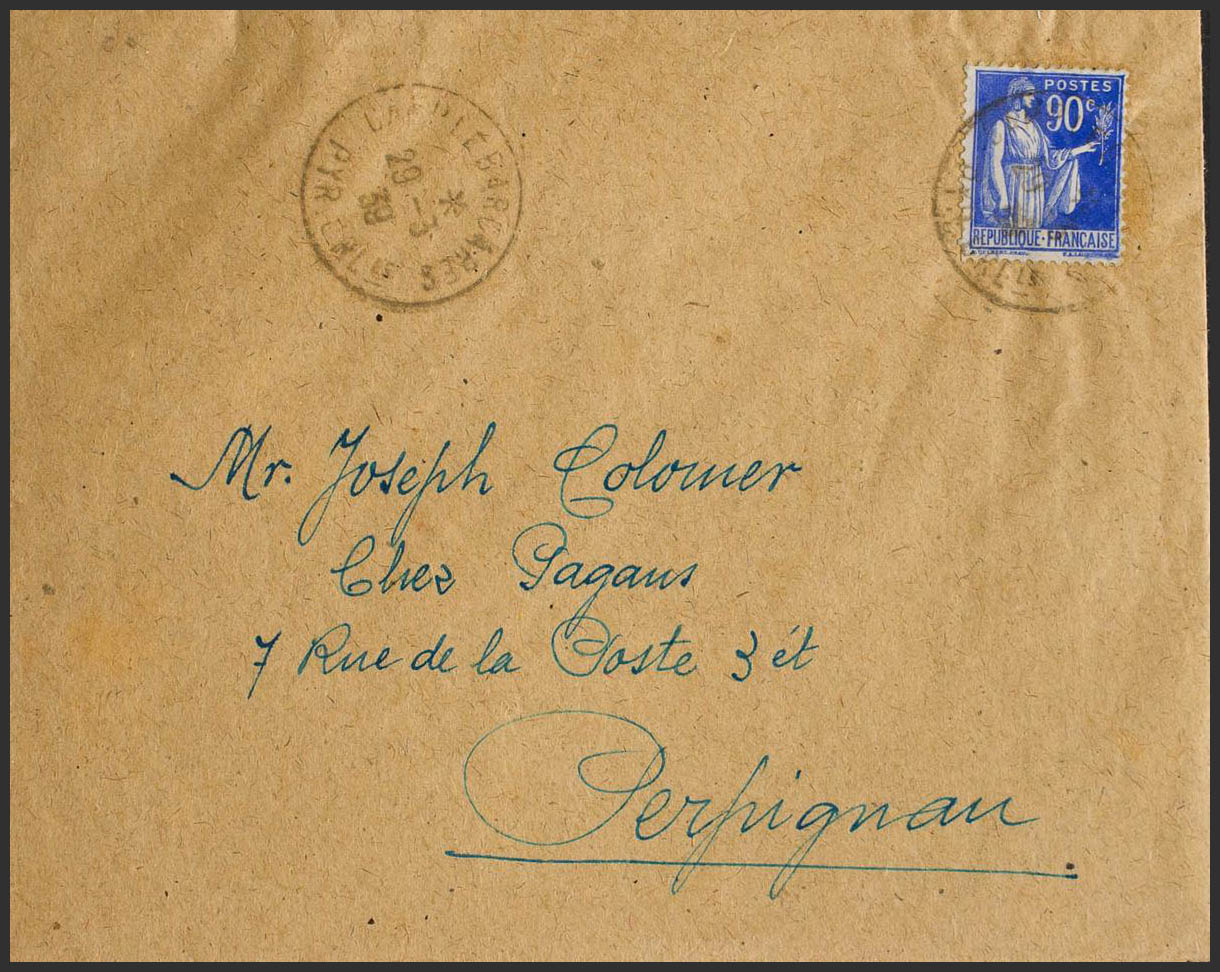 PYR. LAS DLE BARCARES ORIES
29 -3
39
POSTES
90c
REPUBLIQUE·FRANÇAISE
Mr. Joseph Colomer
Chez Pagans
7 Rue de la Poste 3 ét
Perpignan